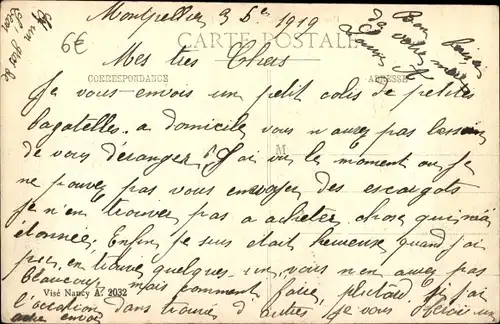 Montpellier 3 bre 1919
Bon baiser
de votre mère
Et un gros de
6€
CARTE POSTALE
Mes très Chers
CORRESPONDANCE
ADRESSE
Je vous envois un petit colis de petites
bagatelles a domicile vous n aurez pas besoin
de vous déranger, J'ai vu le moment ou je
M
ne pouvez pas vous envoyer des escargots
je n'en trouver pas a acheter chose qui m'a
étonnée, Enfin je suis était heureuse quand j'ai
pu, en trouvé quelques-un, vous n'en aurez pas
beaucoup, mais comment faire, plutard si j'ai
Visé Nancy A. 2032
l'occasion dans trouvé d'autres je vous
autre envoi